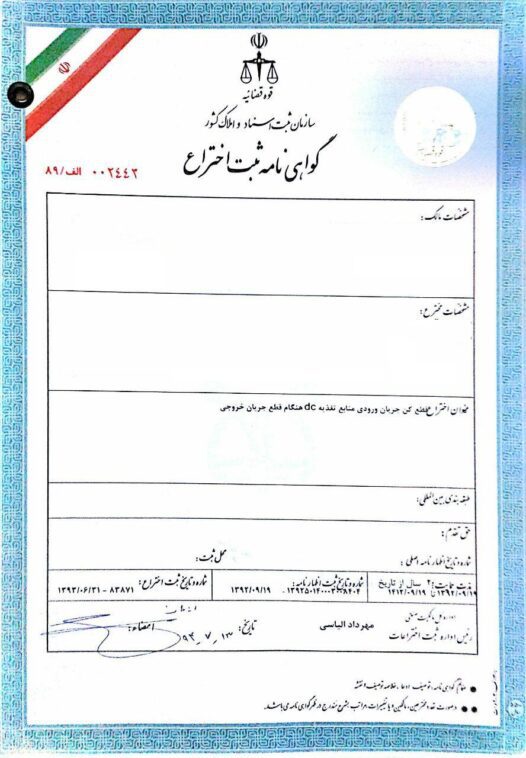 قوه قضائیه
سازمان ثبت اسناد و املاک کشور
گواهی نامه ثبت اختراع
۰۰۲۴۴۲ الف/۸۹
مشخصات مالک:
مشخصات مخترع:
عنوان اختراع: قطع کن جریان ورودی منابع تغذیه dc هنگام قطع جریان خروجی
طبقه بندی بین المللی:
حق تقدم:
شماره و تاریخ اظهارنامه اصلی:
محل ثبت:
مدت حمایت: ۲۰ سال از تاریخ ۱۳۹۲/۰۹/۱۹ تا ۱۴۱۲/۰۹/۱۹
شماره و تاریخ ثبت اظهارنامه: ۱۳۹۲/۰۹/۱۹
شماره و تاریخ ثبت اختراع: ۸۳۸۷۱ - ۱۳۹۳/۰۶/۳۱
اداره کل مالکیت صنعتی
رئیس اداره ثبت اختراعات
مهرداد الیاسی
تاریخ: ۹۳,۷,۱۳
امضاء:
ضمائم گواهی نامه: توصیف، ادعا، خلاصه توصیف و نقشه